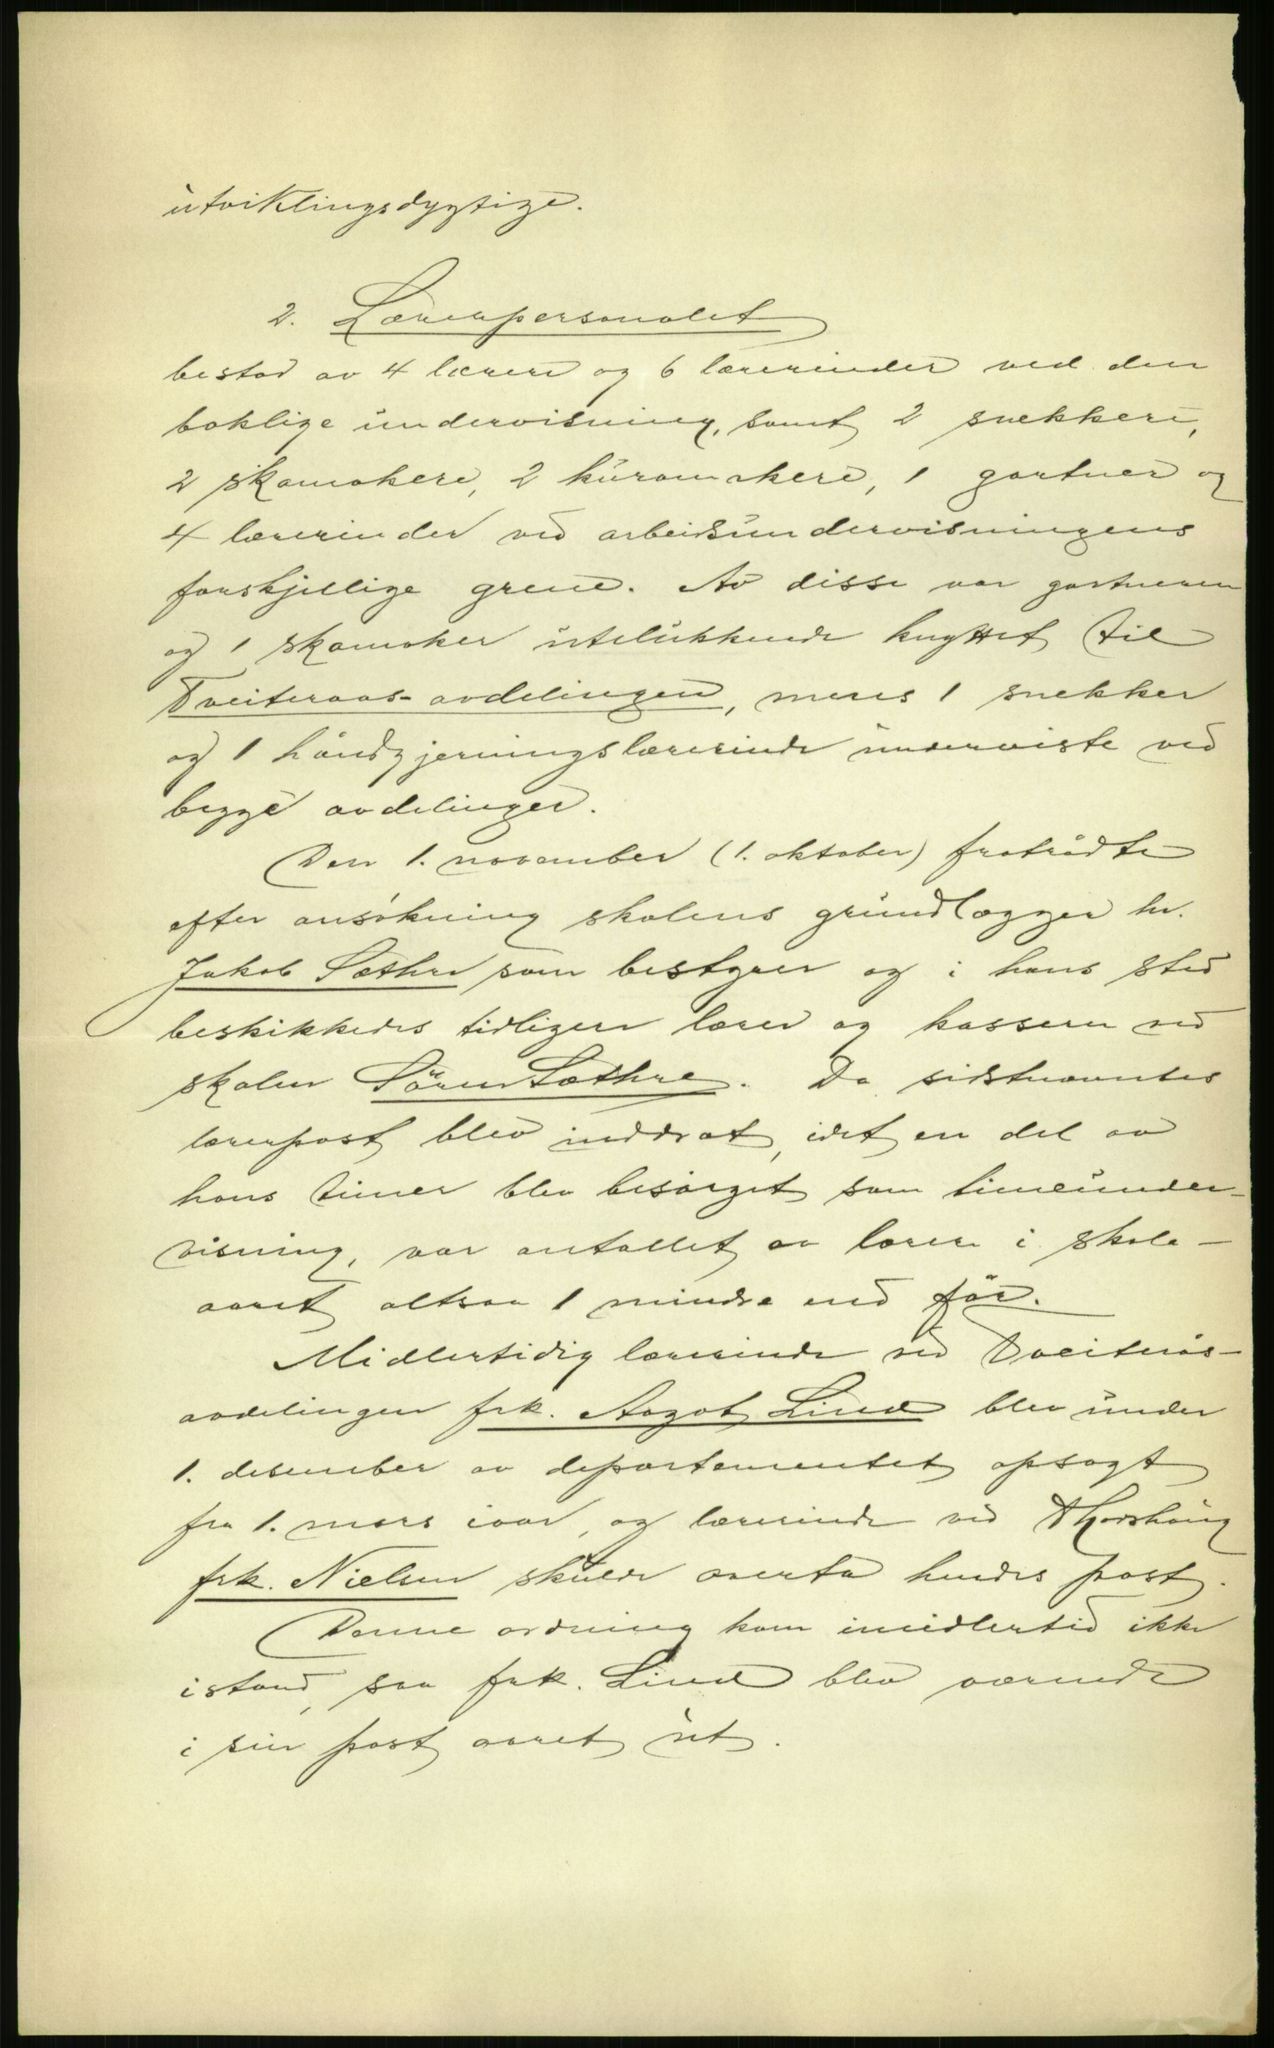 utviklingsdygtige.
2. Lærerpersonalet
bestod av 4 lærere og 6 lærerinder ved den
boklige undervisning, samt 2 snekkere,
2 skomakere, 2 kurvmakere, 1 gartner og
4 lærerinder ved arbeidsundervisningens
forskjellige grene. Av disse var gartneren
og 1 skomaker utelukkende knyttet til
Tveiteraas-avdelingen, mens 1 snekker
og 1 håndgjerningslærerinde underviste ved
begge avdelinger.
Den 1. november (1. oktober) fratrådte
efter ansökning skolens grundlægger hr.
Jakob Sæthre som bestyrer og i hans sted
beskikkedes tidligere lærer og kasserer ved
skolen Sören Sæthre. Da sidstnævntes
lærerpost blev inddrat, idet en del av
hans timer blev besörget som timeunder-
visning, var antallet av lærere i skole-
aaret altsaa 1 mindre end för.
Midlertidig lærerinde ved Tveiterås-
avdelingen frk. Aagot Lind blev under
1. desember av departementet opsagt
fra 1. mars iaar, og lærerinde ved Thorshaug
frk. Nielsen skulde overta hendes post.
Denne ordning kom imidlertid ikke
istand, saa frk. Lind blev værende
i sin post aaret ut.